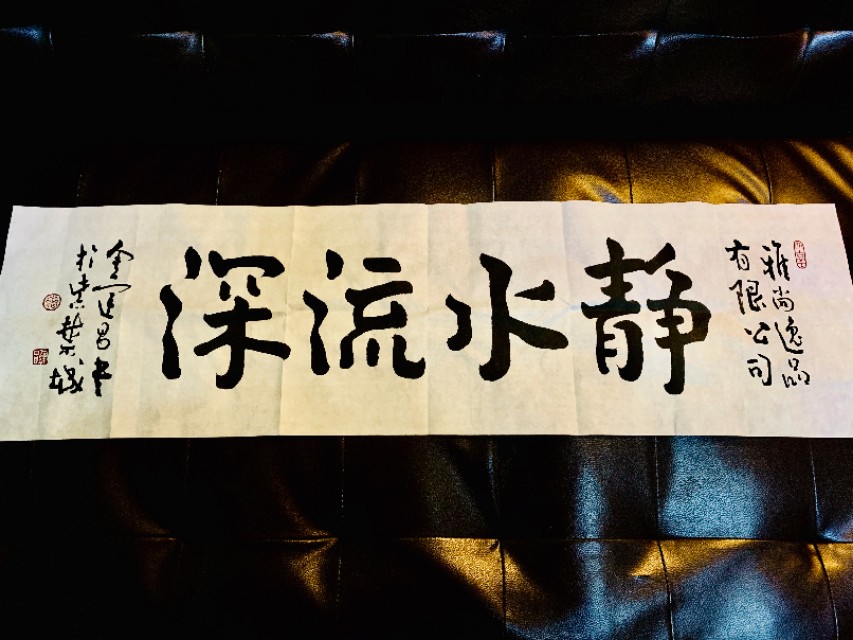 雅尚逸品
有限公司
静水流深
金建昌书